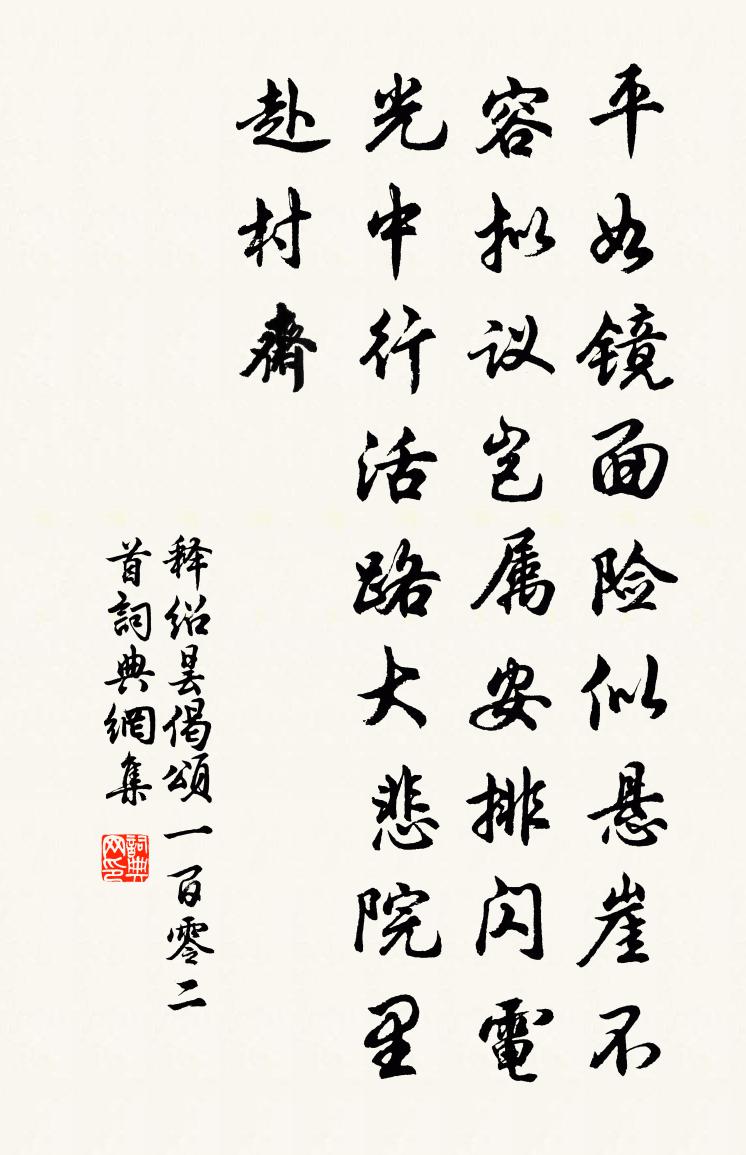 平如镜面险似悬崖不
容拟议岂属安排闪電
光中行活路大悲院里
赴村齋
释绍昙偈頌一百零二
首詞典網集
詞典网印